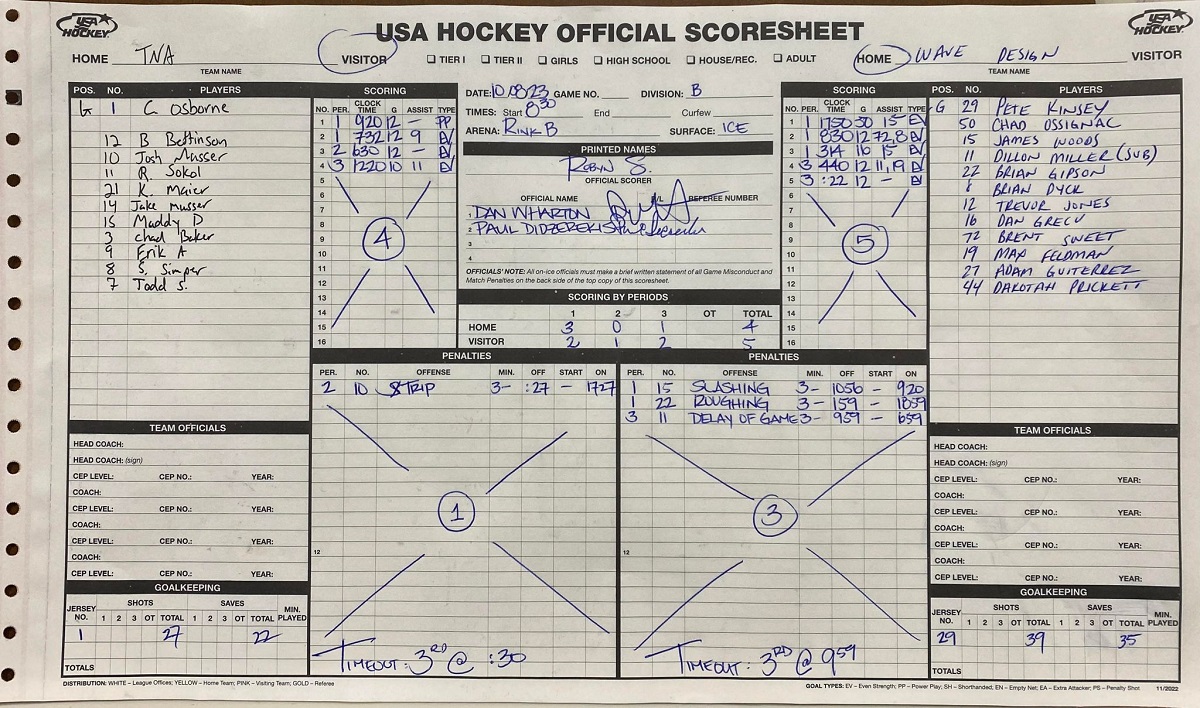 USA HOCKEY
USA HOCKEY OFFICIAL SCORESHEET
USA HOCKEY
HOME TNA VISITOR
TEAM NAME
TIER I TIER II GIRLS HIGH SCHOOL HOUSE/REC. ADULT
HOME WAVE DESIGN VISITOR
TEAM NAME
POS. NO. PLAYERS
G 1 C Osborne
12 B Bettinson
10 Josh Musser
11 R. Sokol
21 K. Maier
14 Jake Musser
15 Maddy D
3 Chad Baker
9 Erik A
8 S. Simper
7 Todd S.
SCORING
NO. PER. CLOCK TIME G ASSIST TYPE
1 1 920 12 — PP
2 1 732 12 9 EV
3 2 630 12 — EV
4 3 1220 10 11 EV
5
6
7
8
9
10
11
12
13
14
15
16
4
DATE: 10/08/23 GAME NO. DIVISION: B
TIMES: Start 8:30 End Curfew
ARENA: RINK B SURFACE: ICE
PRINTED NAMES
ROBYN S.
OFFICIAL SCORER
OFFICIAL NAME REFEREE NUMBER
1 DAN WHARTON
2 PAUL DIDZEREKIS
3
4
OFFICIALS' NOTE: All on-ice officials must make a brief written statement of all Game Misconduct and
Match Penalties on the back side of the top copy of this scoresheet.
SCORING BY PERIODS
1 2 3 OT TOTAL
HOME 3 0 1 4
VISITOR 2 1 2 5
SCORING
NO. PER. CLOCK TIME G ASSIST TYPE
1 1 1750 50 15 EV
2 1 830 12 72,8 EV
3 1 314 16 15 EV
4 3 440 12 11,19 EV
5 3 :22 12 — EV
6
7
8
9
10
11
12
13
14
15
16
5
POS. NO. PLAYERS
G 29 PETE KINSEY
50 CHAD OSSIGNAC
15 JAMES WOODS
11 DILLON MILLER (SUB)
22 BRIAN GIPSON
8 BRIAN DYCK
12 TREVOR JONES
16 DAN GRECU
72 BRENT SWEET
19 MAX FELDMAN
27 ADAM GUITERREZ
44 DAKOTAH PRICKETT
PENALTIES
PER. NO. OFFENSE MIN. OFF START ON
2 10 TRIP 3- :27 — 1727
12
1
TIMEOUT: 3RD @ :30
PENALTIES
PER. NO. OFFENSE MIN. OFF START ON
1 15 SLASHING 3- 1056 — 920
1 22 ROUGHING 3- 159 — 1859
3 11 DELAY OF GAME 3- 959 — 659
12
3
TIMEOUT: 3RD @ 959
TEAM OFFICIALS
HEAD COACH:
HEAD COACH: (sign)
CEP LEVEL: CEP NO.: YEAR:
COACH:
CEP LEVEL: CEP NO.: YEAR:
COACH:
CEP LEVEL: CEP NO.: YEAR:
COACH:
CEP LEVEL: CEP NO.: YEAR:
GOALKEEPING
JERSEY NO. SHOTS SAVES MIN. PLAYED
1 2 3 OT TOTAL 1 2 3 OT TOTAL
1 27 22
TOTALS
TEAM OFFICIALS
HEAD COACH:
HEAD COACH: (sign)
CEP LEVEL: CEP NO.: YEAR:
COACH:
CEP LEVEL: CEP NO.: YEAR:
COACH:
CEP LEVEL: CEP NO.: YEAR:
COACH:
CEP LEVEL: CEP NO.: YEAR:
GOALKEEPING
JERSEY NO. SHOTS SAVES MIN. PLAYED
1 2 3 OT TOTAL 1 2 3 OT TOTAL
29 39 35
TOTALS
DISTRIBUTION: WHITE – League Offices; YELLOW – Home Team; PINK – Visiting Team; GOLD – Referee
GOAL TYPES: EV – Even Strength; PP – Power Play; SH – Shorthanded, EN – Empty Net; EA – Extra Attacker; PS – Penalty Shot 11/2022